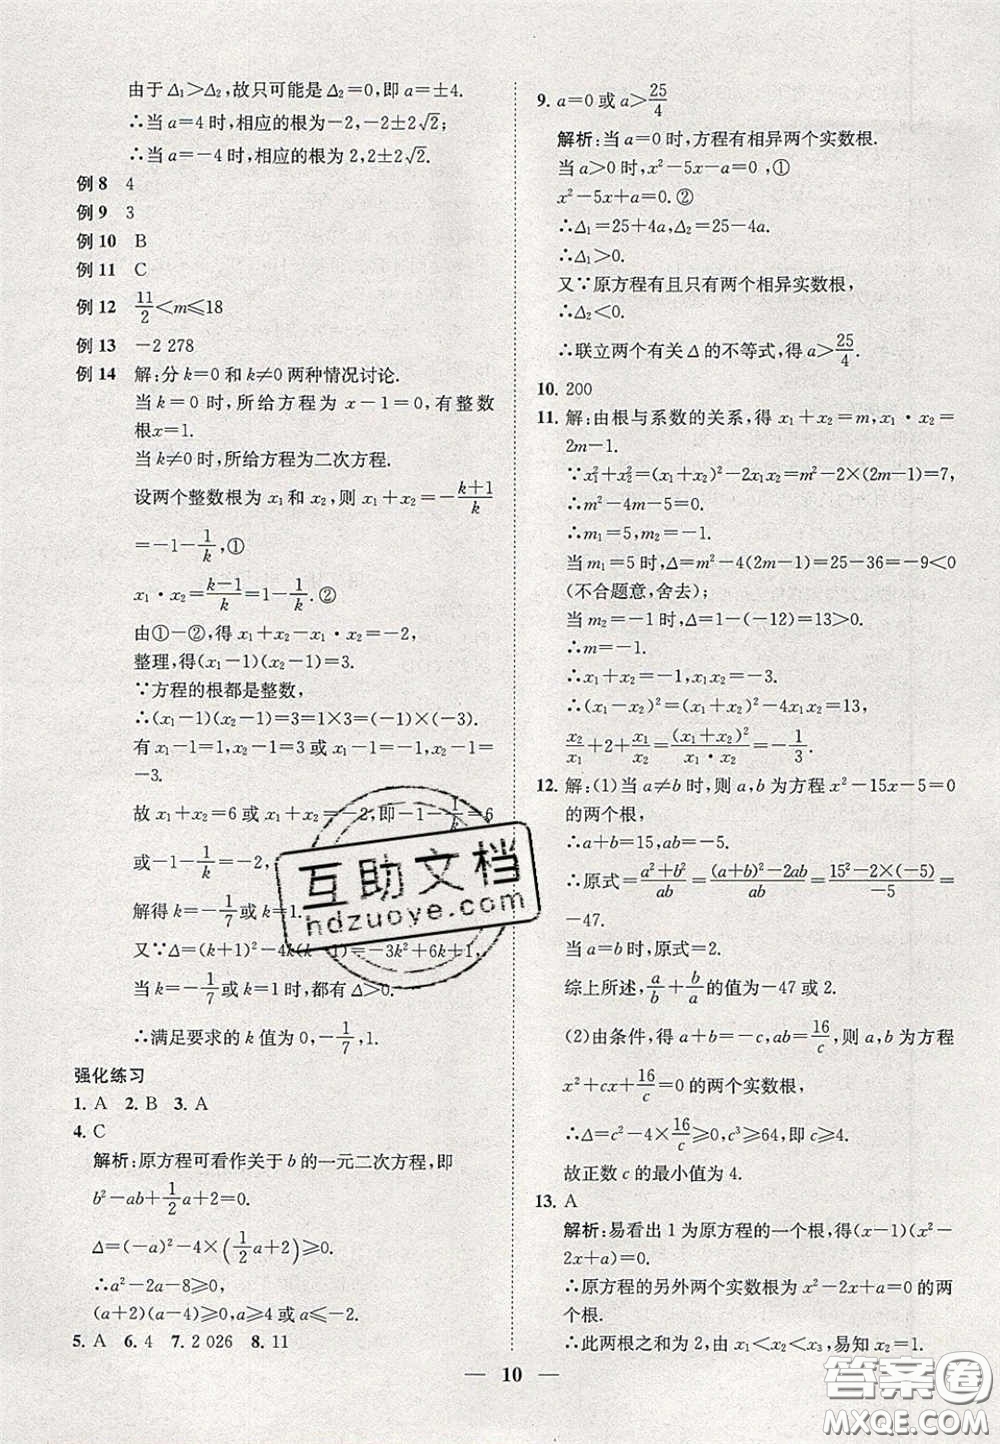 由于Δ₁>Δ₂,故只可能是Δ₂=0,即a=±4.
∴当a=4时,相应的根为-2,-2±2√2;
∴当a=-4时,相应的根为2,2±2√2.
例8 4
例9 3
例10 B
例11 C
例12 11/2<m≤18
例13 -2 278
例14 解:分k=0和k≠0两种情况讨论.
当k=0时,所给方程为x-1=0,有整数
根x=1.
当k≠0时,所给方程为二次方程.
设两个整数根为x₁和x₂,则x₁+x₂=-(k+1)/k
=-1-1/k,①
x₁·x₂=(k-1)/k=1-1/k.②
由①-②,得x₁+x₂-x₁·x₂=-2,
整理,得(x₁-1)(x₂-1)=3.
∵方程的根都是整数,
∴(x₁-1)(x₂-1)=3=1×3=(-1)×(-3).
有x₁-1=1,x₂-1=3或x₁-1=-1,x₂-1=
-3.
故x₁+x₂=6或x₁+x₂=-2,即-1-1/k=6
或-1-1/k=-2,
解得k=-1/7或k=1.
又∵Δ=(k+1)²-4k(k-1)=-3k²+6k+1,
当k=-1/7或k=1时,都有Δ>0.
∴满足要求的k值为0,-1/7,1.
强化练习
1. A 2. B 3. A
4. C
解析:原方程可看作关于b的一元二次方程,即
b²-ab+1/2a+2=0.
Δ=(-a)²-4×(1/2a+2)≥0.
∴a²-2a-8≥0,
(a+2)(a-4)≥0,a≥4或a≤-2.
5. A 6. 4 7. 2 026 8. 11
9. a=0或a>25/4
解析:当a=0时,方程有相异两个实数根.
当a>0时,x²-5x-a=0,①
x²-5x+a=0.②
∴Δ₁=25+4a,Δ₂=25-4a.
∴Δ₁>0.
又∵原方程有且只有两个相异实数根,
∴Δ₂<0.
∴联立两个有关Δ的不等式,得a>25/4.
10. 200
11. 解:由根与系数的关系,得x₁+x₂=m,x₁·x₂=
2m-1.
∵x₁²+x₂²=(x₁+x₂)²-2x₁x₂=m²-2×(2m-1)=7,
∴m²-4m-5=0.
∴m₁=5,m₂=-1.
当m₁=5时,Δ=m²-4(2m-1)=25-36=-9<0
(不合题意,舍去);
当m₂=-1时,Δ=1-(-12)=13>0.
∴m=-1.
∴x₁+x₂=-1,x₁x₂=-3.
∴(x₁-x₂)²=(x₁+x₂)²-4x₁x₂=13,
x₂/x₁+2+x₁/x₂=(x₁+x₂)²/(x₁·x₂)=-1/3.
12. 解:(1)当a≠b时,则a,b为方程x²-15x-5=0
的两个根,
∴a+b=15,ab=-5.
∴原式=(a²+b²)/ab=((a+b)²-2ab)/ab=(15²-2×(-5))/-5=
-47.
当a=b时,原式=2.
综上所述,a/b+b/a的值为-47或2.
(2)由条件,得a+b=-c,ab=16/c,则a,b为方程
x²+cx+16/c=0的两个实数根,
∴Δ=c²-4×16/c≥0,c³≥64,即c≥4.
故正数c的最小值为4.
13. A
解析:易看出1为原方程的一个根,得(x-1)(x²-
2x+a)=0.
∴原方程的另外两个实数根为x²-2x+a=0的两
个根.
∴此两根之和为2,由x₁<x₂<x₃,易知x₂=1.
— 10 —
互助文档
hdzuoye.com
答案圈
MXQE.COM